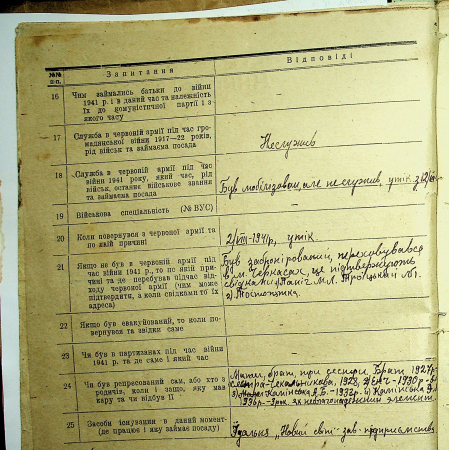 №№ п.п.
Запитання
Відповіді
16
Чим займались батьки до війни
1941 р. і в даний час та належність
їх до комуністичної партії і з
якого часу
—
17
Служба в червоній армії під час гро-
мадянської війни 1917—22 років,
рід військ та займаєма посада
Неслужив
18
Служба в червоній армії під час
війни 1941 року, який час, рід
військ, останнє військове звання
та займаєма посада
Був мобілізован, але не служив, утік з
19
Військова спеціальність (№ ВУС)
—
20
Коли повернувся з червоної армії та
по якій причині
2/VIII-1941 р, утік.
21
Якщо не був в червоній армії під
час війни 1941 р., то по якій при-
чині та де перебував підчас від-
ходу червоної армії (чим може
підтвердити, а коли свідками то їх
адреса)
Був забронірований, перехувувався
в м. Черкасах, це підтвержують
свідки
22
Якщо був евакуйований, то коли по-
вернувся та звідки саме
—
23
Чи був в партизанах під час війни
1941 р. та де саме і який час
—
24
Чи був репресований сам, або хто з
родичів, коли і защо, яку мав
кару та чи відбув її
брат, три сестри. Брат 1927р-
1928, 2)
3) Камінська 1932р. Камінська
25
Засоби існування в даний момент
(де працює і яку займає посаду)
Їдальня „Новий світ"- зав. підприємства.